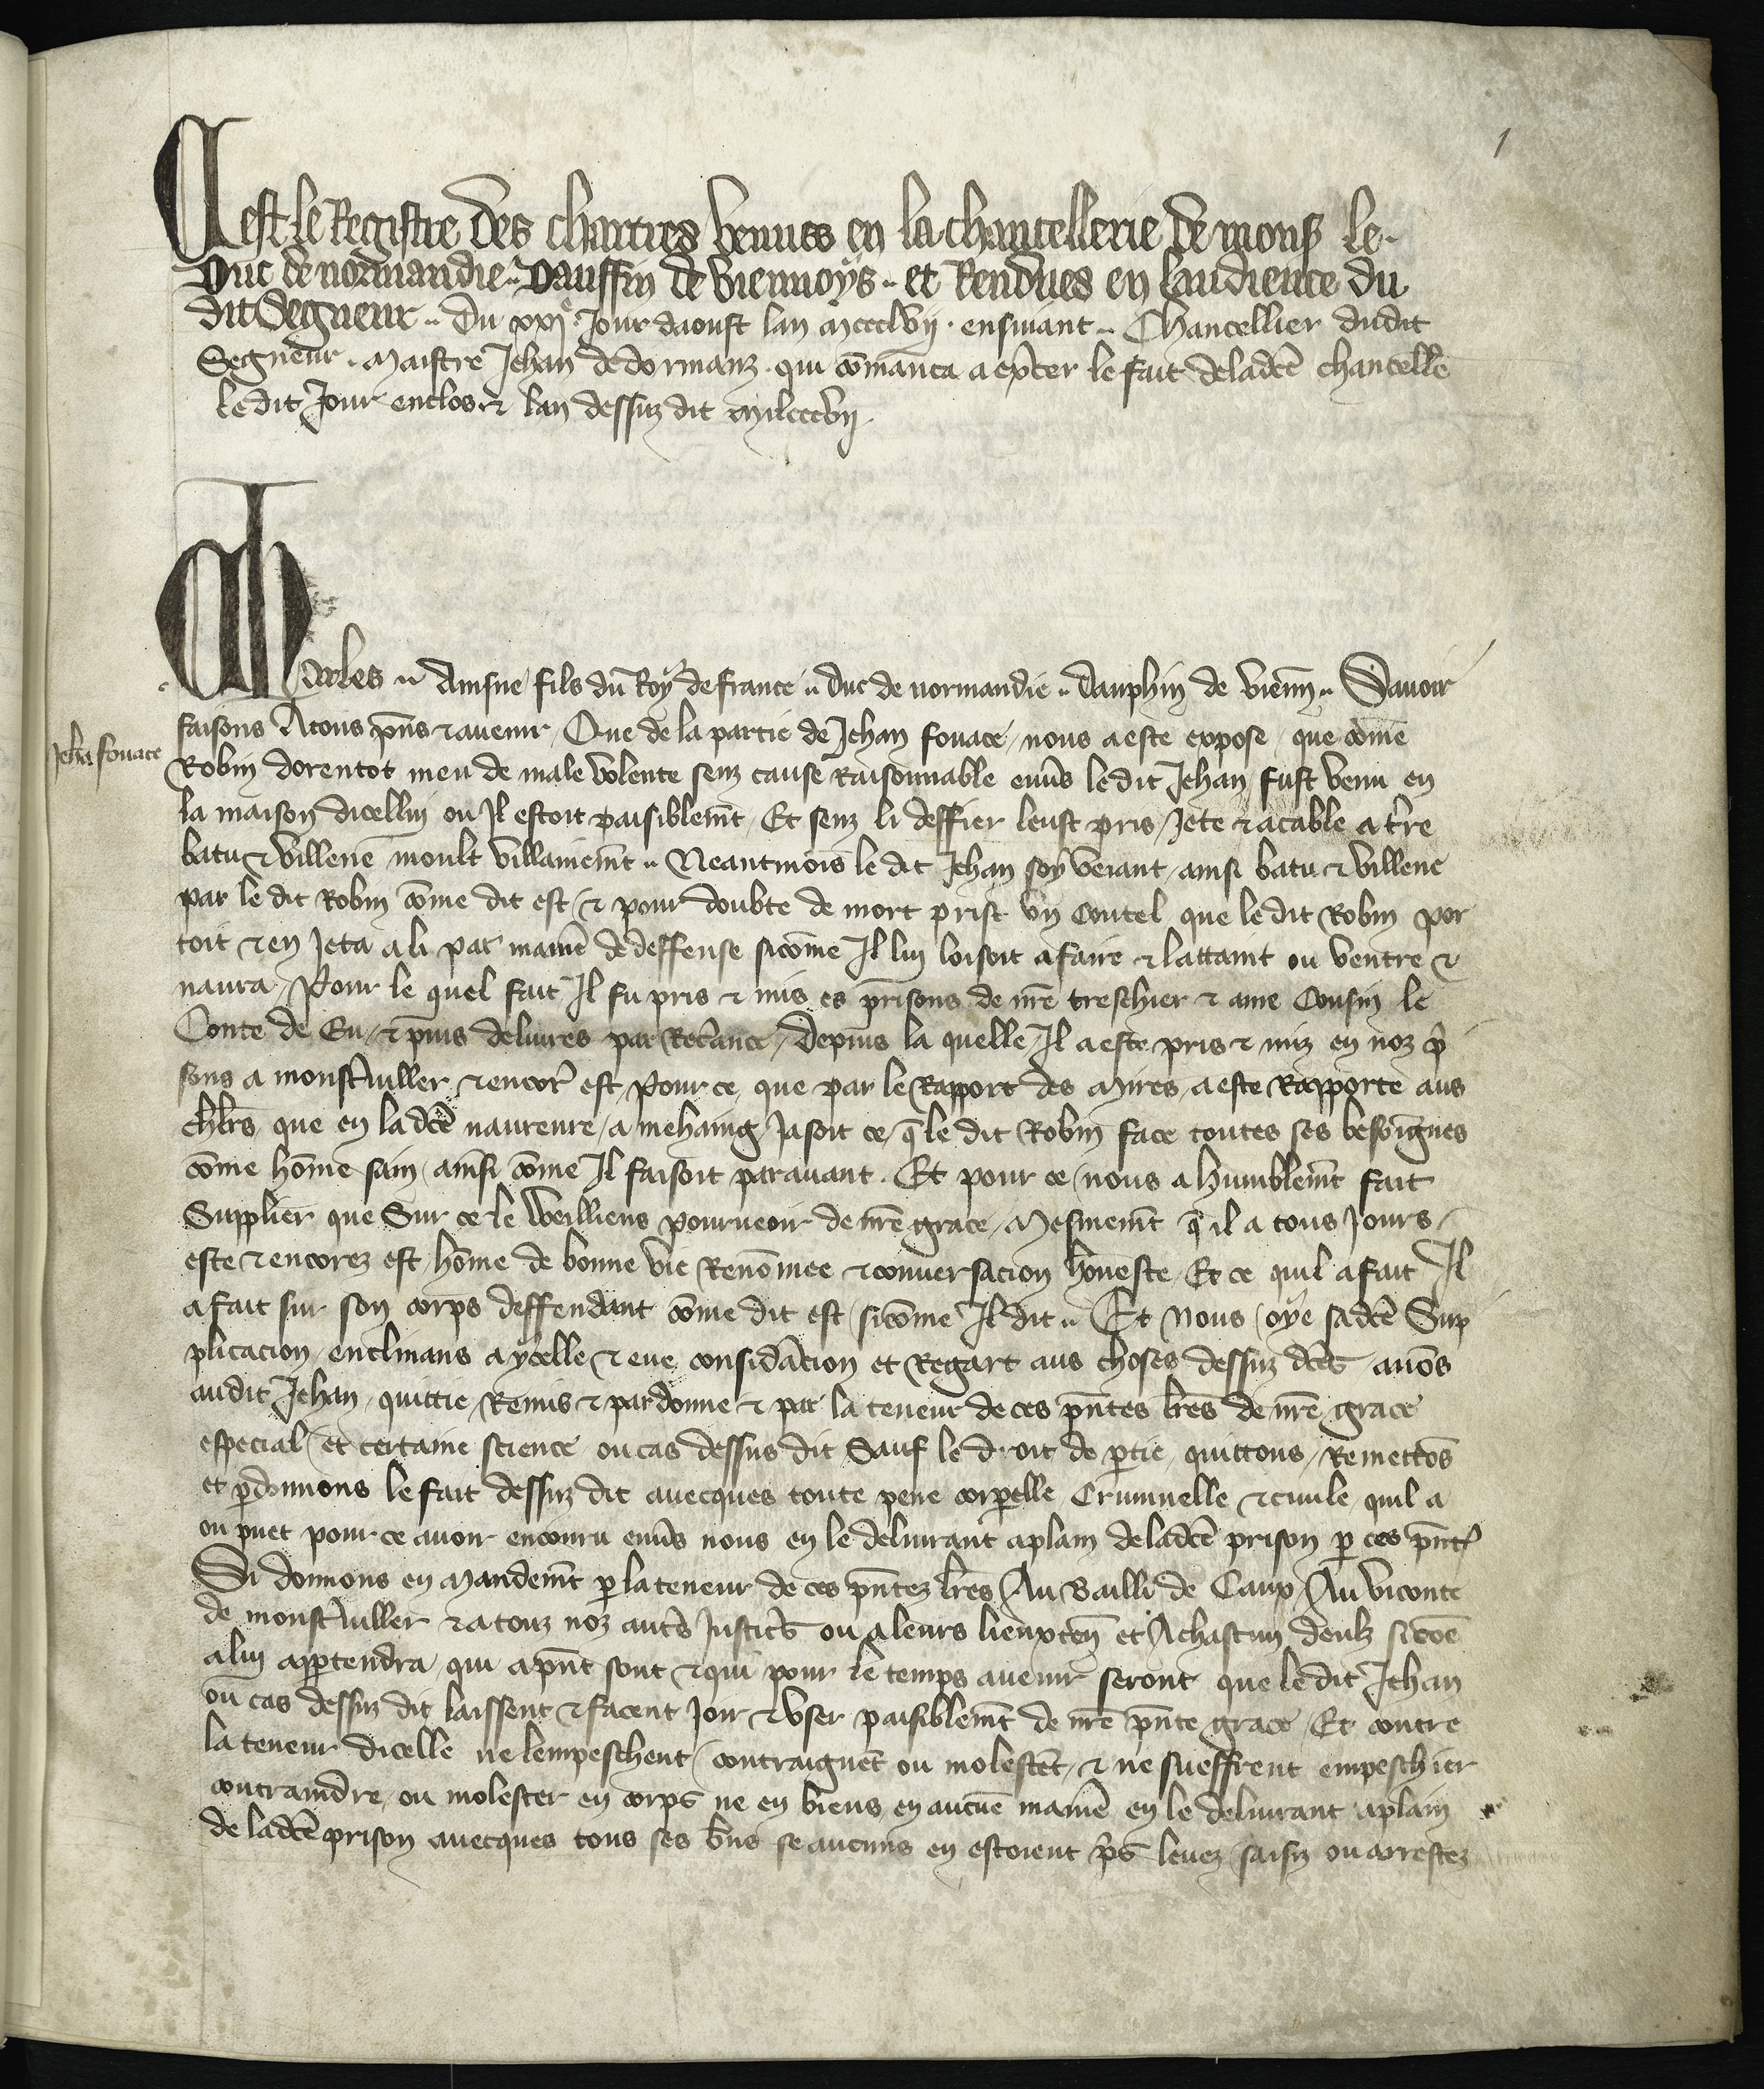 1
Cest le Registre des chartres venues en la chancellerie de mons le
Duc de normandie Dauffin de viennoys et Rendues en laudience du
dit Segneur Du xxie Jour daoust lan mccclvij ensuiant Chancellier dudit
Segneur maistre Jehan de dormanz qui cōmanca a expcer le fait deladcē chancelle
ledit Jour enclos & lan dessuz dit milccclvij
Charles Ainsne fils du Roy de france duc de normandie dauphin de vienn Sauoir
Jehan fouace
faisons A tous pn̄s & auenir Que de la partie de Jehan fouace nous a este expose que cōme
Robin dorentot meu de male volente senz cause Raisonnable enu̅s ledit Jehan fust venu en
la maison dicellui ou Il estoit paisiblem̄t Et senz li deffier leust pris Jete & acable a t̄re
batu & villene moult villainem̄t Neantmois le dit Jehan soy veiant ainsi batu & villene
par le dit Robin cōme dit est & pour doubte de mort prist vn coutel que le dit Robin por
toit & en Jeta a li par manie̅ de deffense sicōme Il lui loisoit a faire & lattaint ou ventre &
naura Pour le quel fait Il fu pris & mis es prisons de nr̄e treschier & ame Cousin le
Conte de Eu & puis deliures par Recāance Depuis la quelle Il a este pris & miz en noz p̄
sons a monstiuller & encor est Pour ce que par le Rapport des Mires a este Rapporte aus
que en la dcē naureure a mehaing Jasoit ce q̄ le dit Robin face toutes ses besoignes
cōme hōme sain ainsi cōme Il faisoit parauant Et pour ce nous a humblem̄t fait
Supplier que Sur ce le weilliens pourueoir de nr̄e grace Mesmem̄t q̄ il a tous Jours
este & encorez est hōme de bonne vie Renōmee & conuersacion honeste Et ce quil a fait Il
a fait sur son corps deffendant cōme dit est sicōme Il dit Et Nous oye sadcē Sup
plicacion enclinans a ycelle & eue considācion et Regart aus choses dessuz dcēs auōs
audit Jehan quittie Remis & pardonne & par la teneur de ces pn̄tes lr̄es de nr̄e grace
especial et certaine science ou cas dessus dit Sauf le droit de p̄tie quittons Remettōs
et p̄donnons le fait dessuz dit auecques toute pene corpelle Criminelle & ciuile quil a
ou puet pour ce auoir encouru enu̅s nous en le deliurant a plain deladcē prison p̄ ces pn̄t
Si donnons en Mandem̄t p̄ la teneur de ces pn̄tez lr̄es Au Bailli de Caux Au viconte
de monstiuller & a touz noz aut̄s Justic̄s ou a leurs lieuxten̄ et A chascun deulz si cōe
a lui app̄tendra qui a pn̄t sont & qui pour le temps auenir seront que ledit Jehan
ou cas dessuz dit laissent & facent Joir & vser paisiblem̄t de nr̄e pn̄te grace Et contre
la teneur dicelle ne lempeschent contraignēt ou molestēt & ne sueffrent empeschier
contraindre ou molester en corps ne en biens en aucūe manie̅ en le deliurant a plain
de ladcē prison auecques tous ses bn̄s se aucuns en estoient p̄s leuez saisiz ou arrestez